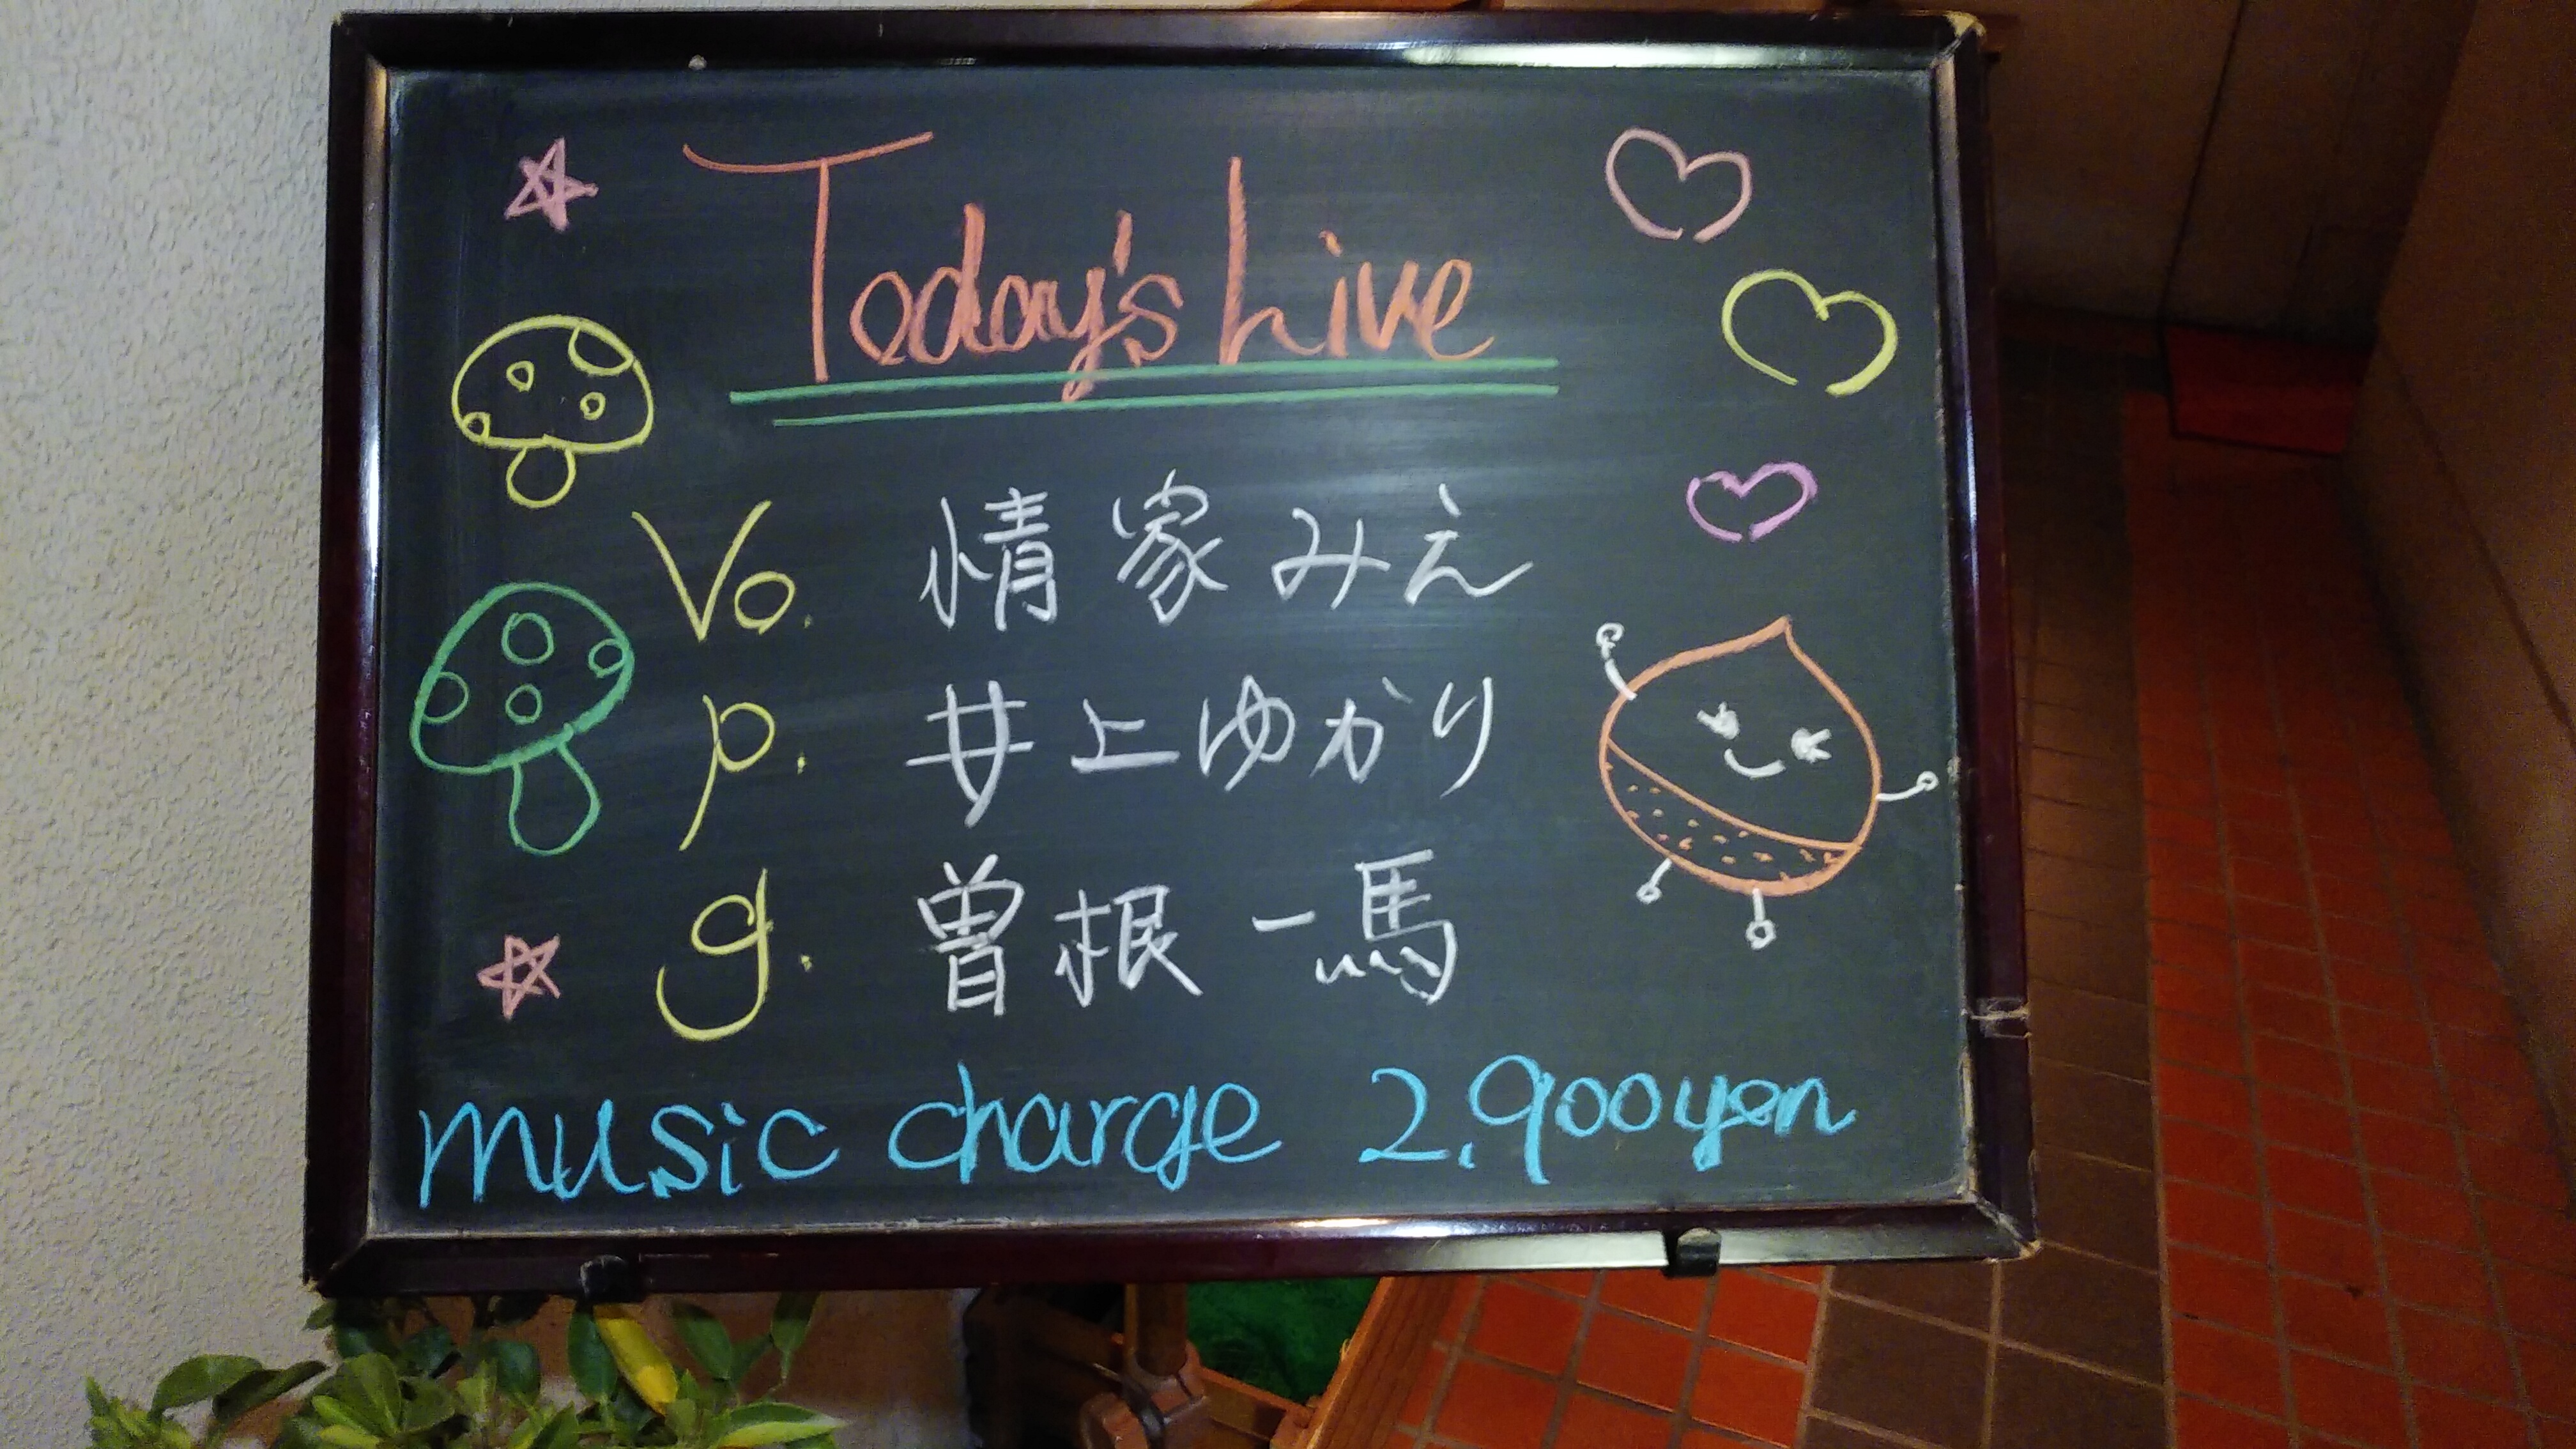 Today's Live
Vo. 情家みえ
p. 井上ゆかり
g. 曽根一馬
music charge 2,900yen